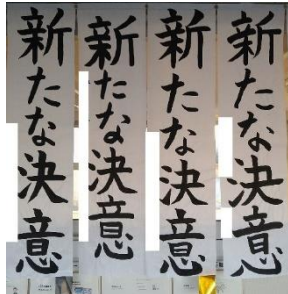 新たな決意
新たな決意
新たな決意
新たな決意